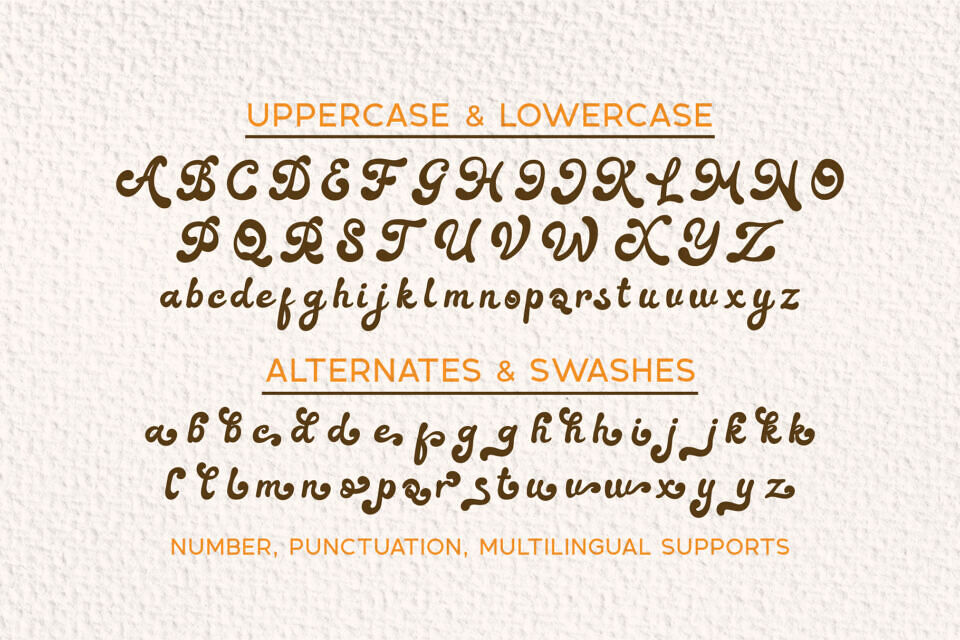 UPPERCASE & LOWERCASE
A B C D E F G H I J K L M N O
P Q R S T U V W X Y Z
a b c d e f g h i j k l m n o p q r s t u v w x y z
ALTERNATES & SWASHES
a b b c d d e f g g h h h i j j k k k
l l l m n o p q r s t u v w x y y z
NUMBER, PUNCTUATION, MULTILINGUAL SUPPORTS